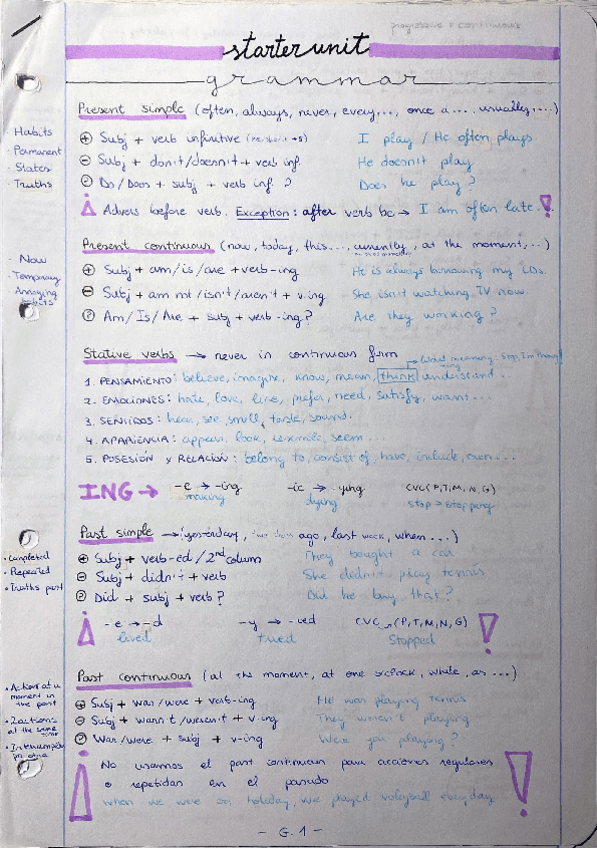 progressive = continuous
starter unit
grammar
Present simple (often, always, never, every..., once a ... usually, ...)
· Habits
· Permanent
· States
· Truths
+ Subj + verb infinitive I play / He often plays
- Subj + don't/doesn't + verb inf. He doesn't play
? Do/Does + subj + verb inf.? Does he play?
¡ Advers before verb. Exception: after verb be → I am often late. !
Present continuous (now, today, this..., currently, at the moment, ...)
· Now
· Temporary
· Annoying habits
+ Subj + am/is/are + verb-ing He is always borrowing my CDs.
- Subj + am not/isn't/aren't + v.ing She isn't watching TV now.
? Am/Is/Are + subj + verb-ing? Are they working?
Stative verbs → never in continuous form
1. PENSAMIENTO: believe, imagine, know, mean, think, understand...
2. EMOCIONES: hate, love, like, prefer, need, satisfy, want...
3. SENTIDOS: hear, see, smell, taste, sound.
4. APARIENCIA: appear, look, resemble, seem...
5. POSESIÓN Y RELACIÓN: belong to, consist of, have, include, own...
ING → -e → -ing -ie → -ying CVC (P, T, M, N, G)
making dying stop → stopping
Past simple → (yesterday, ago, last week, when ...)
· Completed
· Repeated
· Truths past
+ Subj + verb-ed/2nd column They bought a car
- Subj + didn't + verb She didn't play tennis
? Did + subj + verb? Did he buy that?
¡ -e → -d -y → -ied CVC → (P, T, M, N, G) !
lived tried Stopped
Past continuous (at the moment, at one o'clock, while, as ...)
· Action at a moment in the past
· 2 actions at the same time
+ Subj + was/were + verb-ing He was playing tennis
- Subj + wasn't/weren't + v.ing They weren't playing
? Was/were + subj + v-ing? Were you playing?
¡ No usamos el past continuous para acciones regulares !
o repetidas en el pasado
when we were on holiday, we played voleyball everyday
- G.1 -